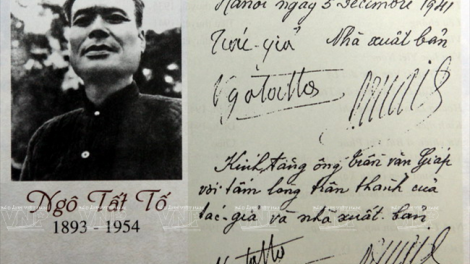 Hanoi ngày 5 Décembre 1941
Tác-giả Nhà xuất bản
Ngatatto
Kính tặng ông Trần văn Giáp
với tấm lòng trân thành của
tác-giả và nhà xuất-bản
Ngatatto
Ngô Tất Tố
1893 - 1954